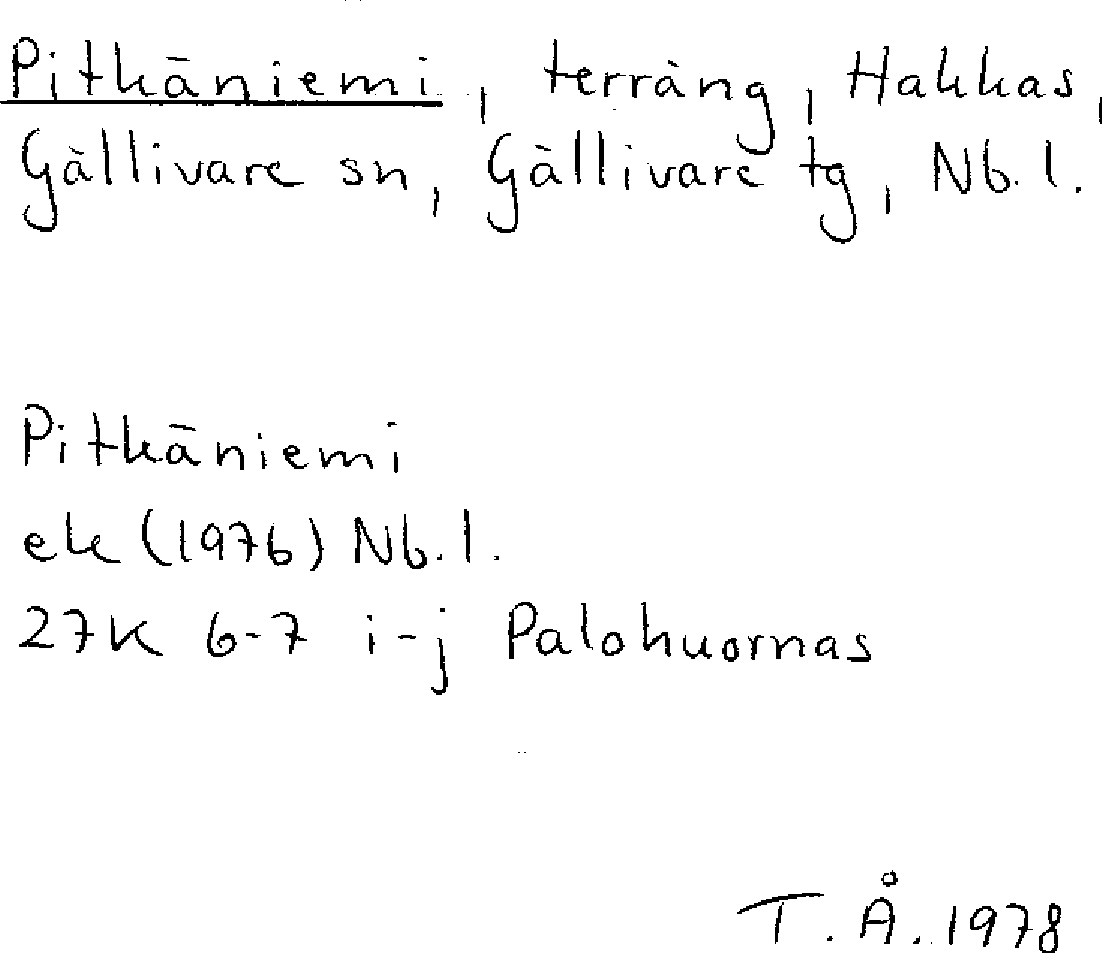 Pitkäniemi, terräng, Hakkas,
Gällivare sn, Gällivare tg, Nb. l.
Pitkäniemi
ek (1976) Nb. l.
27K 6-7 i-j Palohuornas
T. Å. 1978